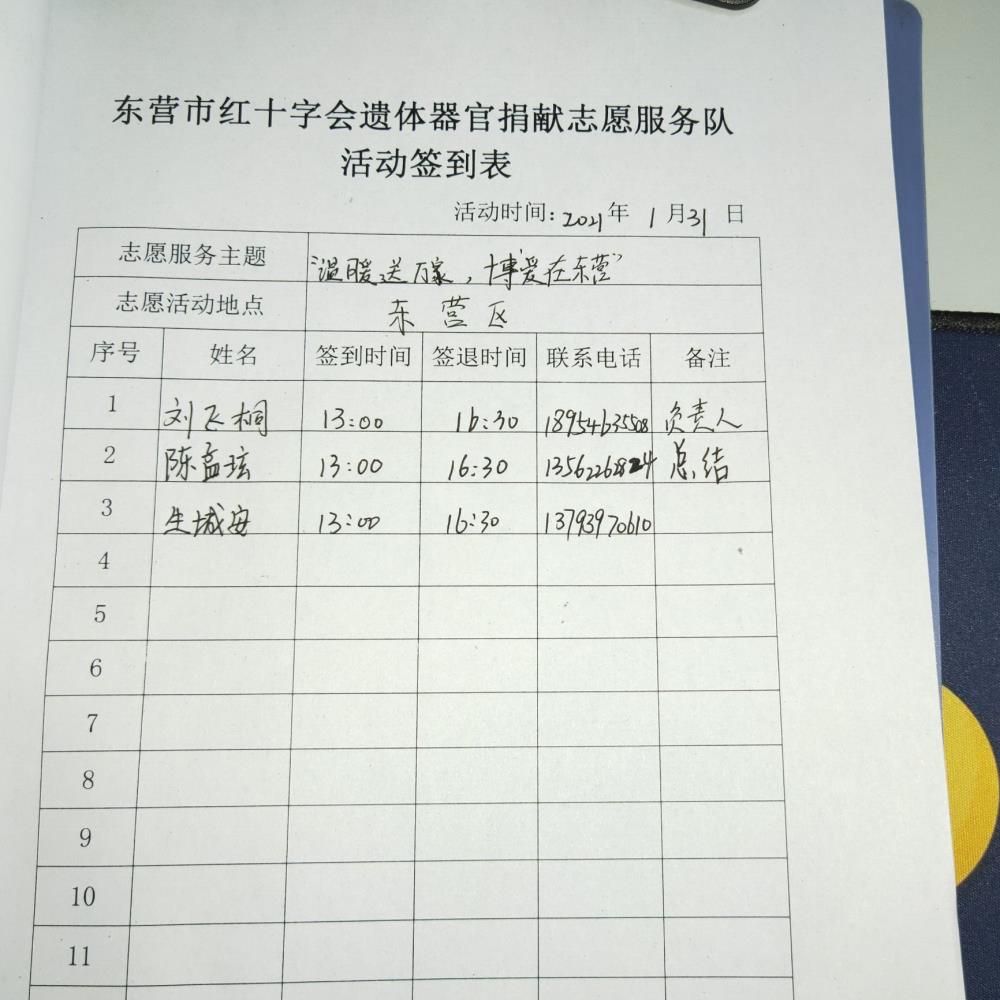 东营市红十字会遗体器官捐献志愿服务队
活动签到表
活动时间:2021年 1月31日
志愿服务主题 "温暖送万家，博爱在东营"
志愿活动地点 东营区
序号 姓名 签到时间 签退时间 联系电话 备注
1 刘飞桐 13:00 16:30 18954635508 负责人
2 陈孟玹 13:00 16:30 13562262824 总结
3 生城安 13:00 16:30 13793970610
4
5
6
7
8
9
10
11